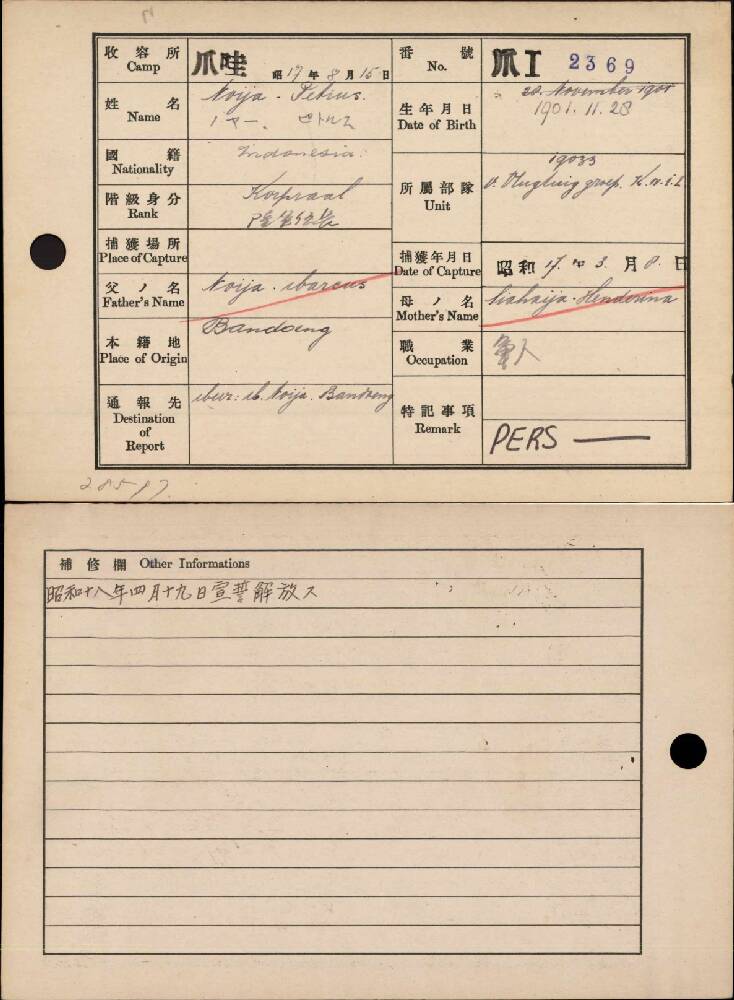 收容所 Camp
爪哇 昭17年8月15日
番號 No.
爪I 2369
姓名 Name
Noija. Petrus.
ノヤー、ピトルス
生年月日 Date of Birth
28 November 1901
1901. 11. 28
國籍 Nationality
Indonesia.
階級身分 Rank
Korpraal
所屬部隊 Unit
19033
K.N.I.L
捕獲場所 Place of Capture
捕獲年月日 Date of Capture
昭和17年3月8日
父ノ名 Father's Name
Noija.
母ノ名 Mother's Name
本籍地 Place of Origin
Bandoeng
職業 Occupation
軍人
通報先 Destination of Report
Noija. Bandoeng
特記事項 Remark
PERS —
28517
補修欄 Other Informations
昭和十八年四月十九日宣誓解放ス